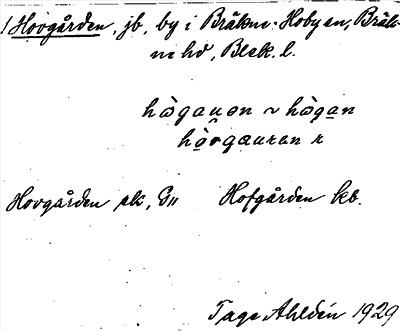 1 Hovgården, jb, by i Bräkne-Hoby sn, Bräk-
ne hd, Blek. l.
hògauən ~ hògan
Hovgården sk, G11 Hofgården kb.
Tage Ahldén 1929